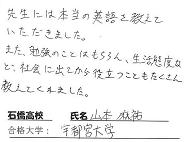 先生には本当の英語を教えて
いただきました。
また、勉強のことはもちろん、生活態度な
ど、社会に出てから役立つこともたくさん
教えてくれました。
石橋高校 氏名 山本 麻祐
合格大学： 宇都宮大学